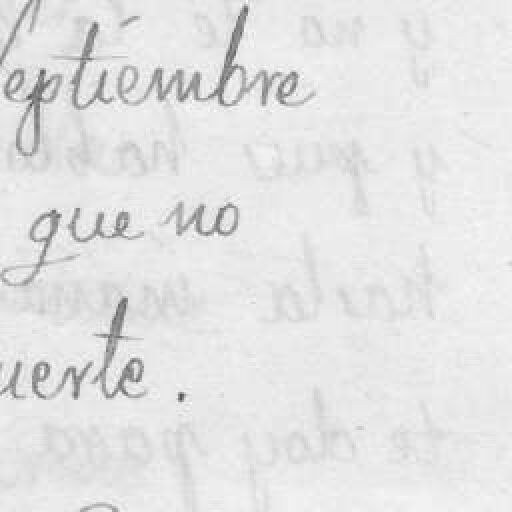 Septiembre
que no
uerte.